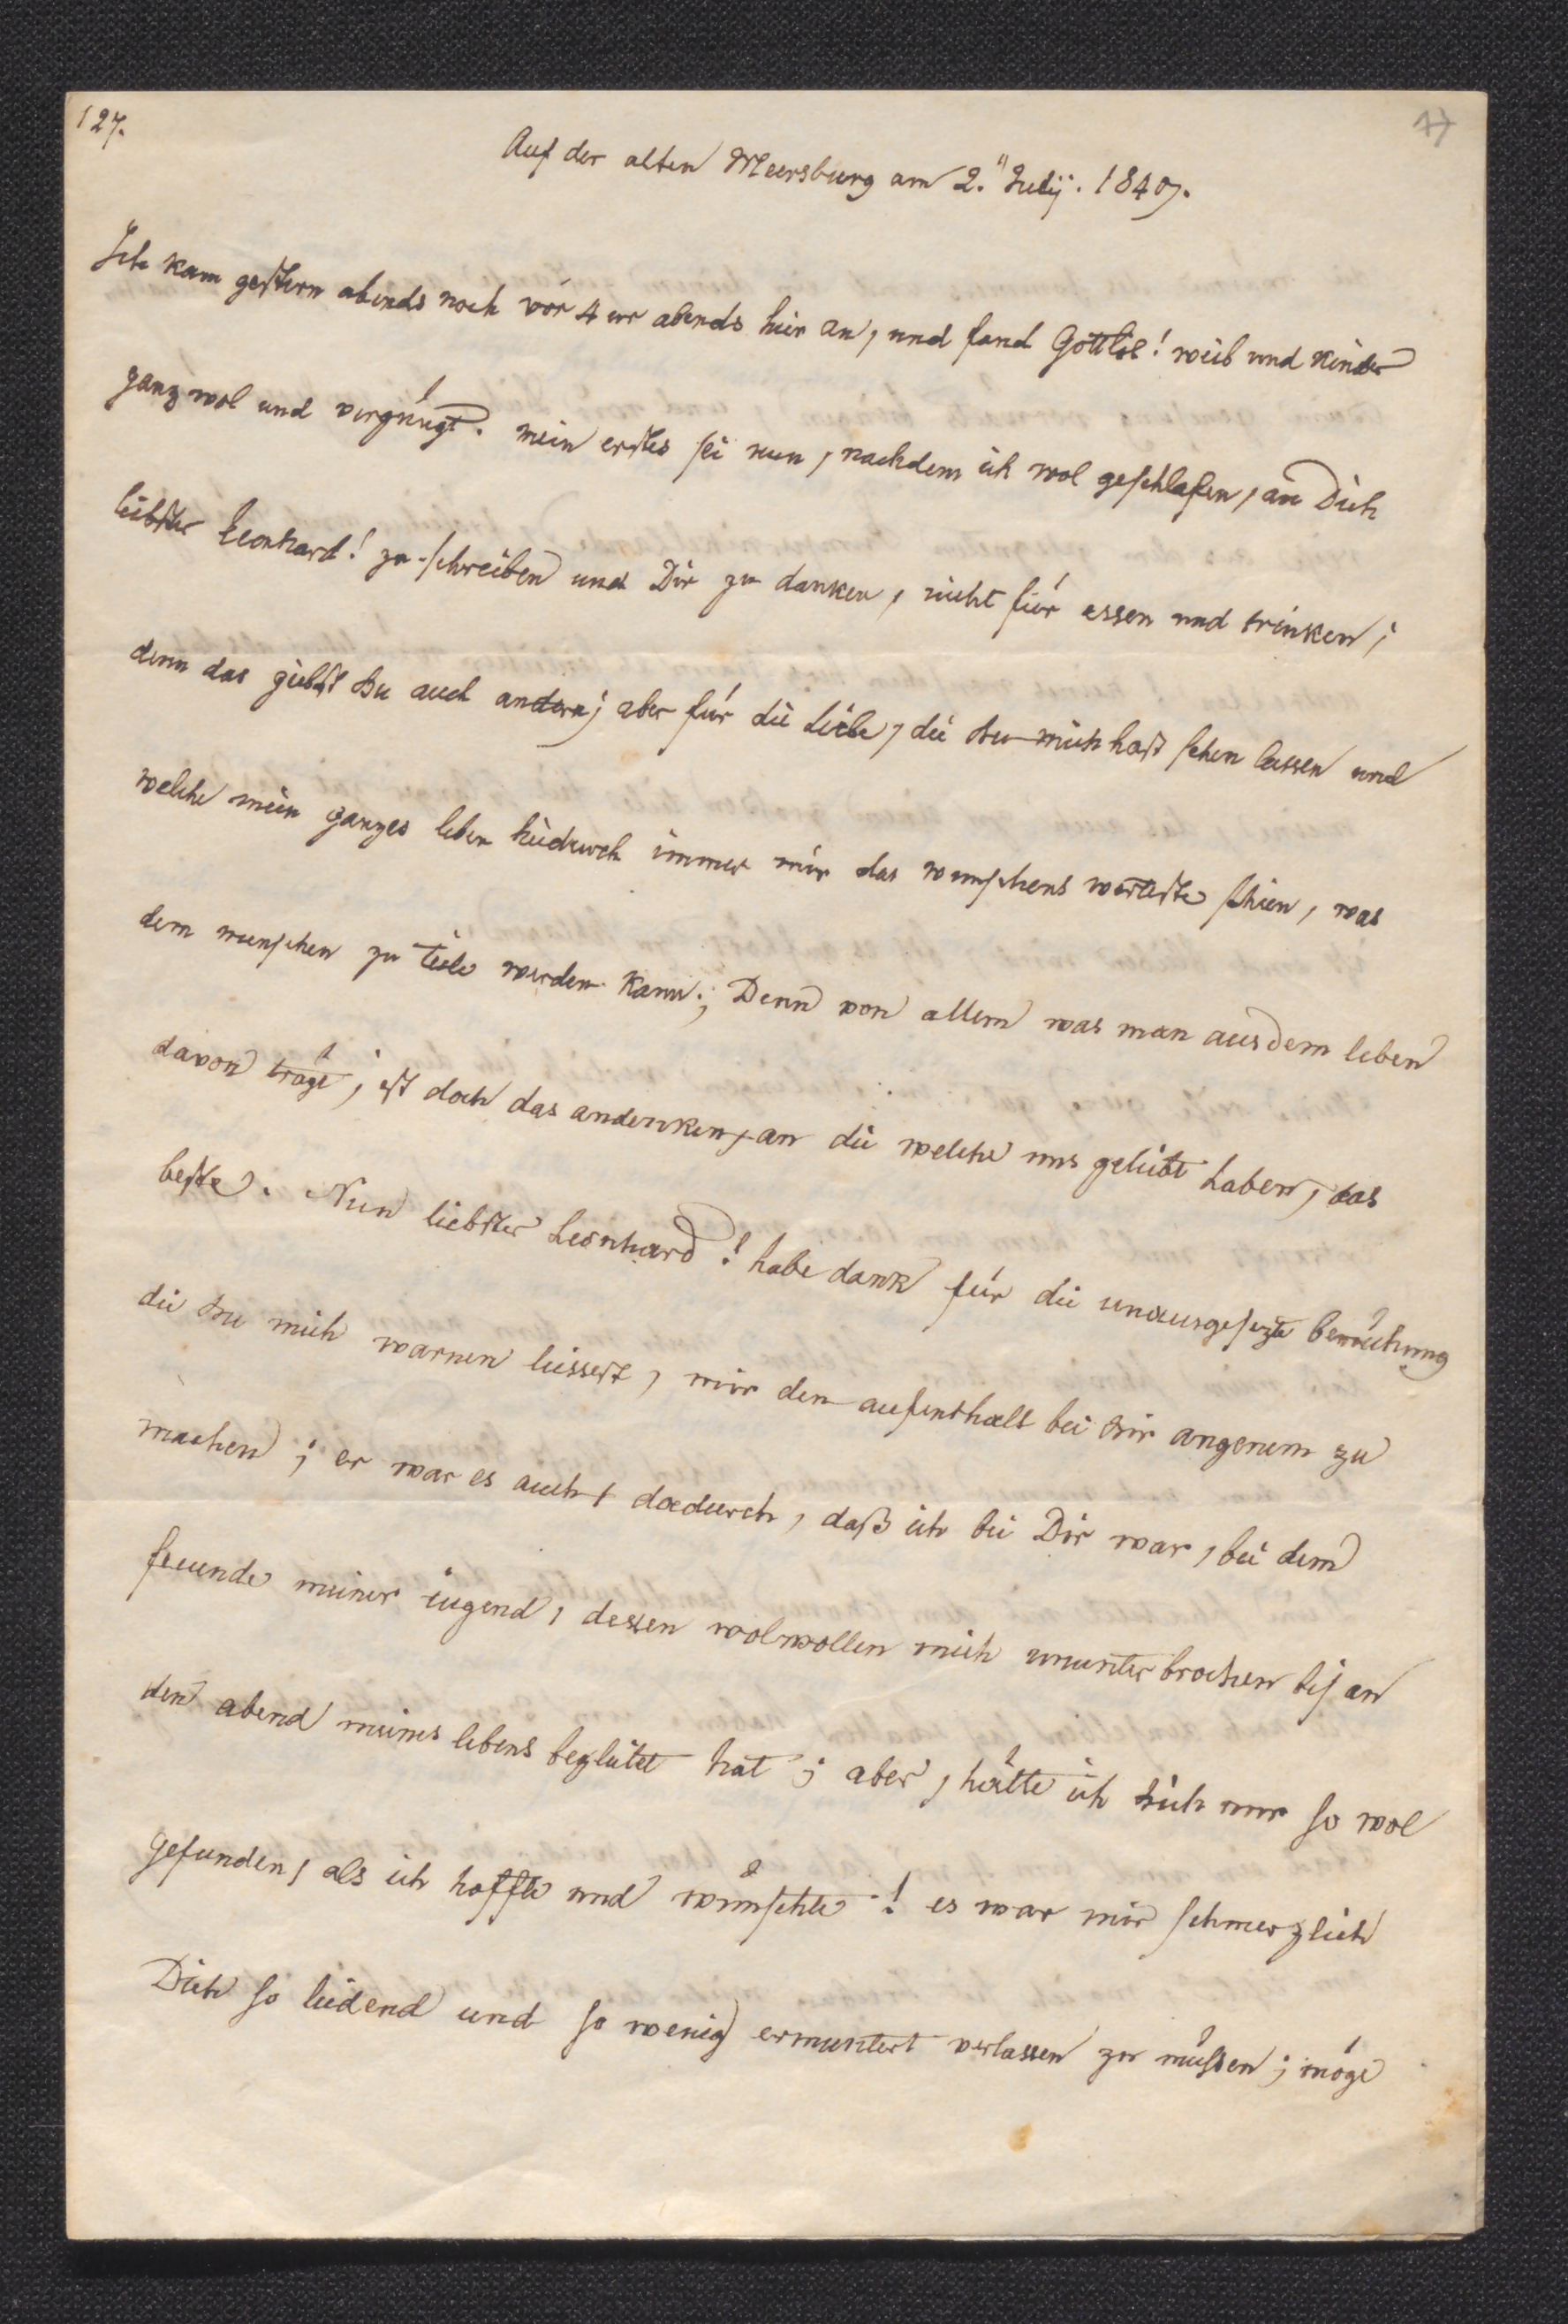 127.
17
Auf der alten Meersburg am 2.'' Julÿ. 1840.
Ich kam gestern abends noch vór 4 ur abends hier an, und fand Gottlob! weib und kinder
ganz wol und vergnúgt. mein erstes sei nun, nachdem ich wol geschlafen, an Dich
liebster Leonhard! zu schreiben und Dir zu danken, nicht fúr essen und trinken;
denn das giebst du auch andern; aber fúr die Liebe, die du mich hast sehen lassen und
welche mein ganzes leben hiedurch immer mir das wunschens werteste schien, was
dem menschen zu teile werden kann; Denn von allem was man aus dem leben
davon trägt, ist doch das andenken, an die welche uns geliebt haben, das
beste. Nun liebster Leonhard! habe dank fúr die unausgesezte bemühung
die du mich warnen liessest, mir den aufenthalt bei dir angenem zu
machen; er war es auch, dadurch, daß ich bei Dir war, bei dem
freunde meiner iugend, dessen wolwollen mich ununterbrochen bis an
den abend meines lebens begleitet hat; aber, hätte ich dich nur so wol
gefunden, als ich hoffte und wünschte! es war mir schmerzlich
Dich so leidend und so wenig ermuntert verlassen zu müssen; möge